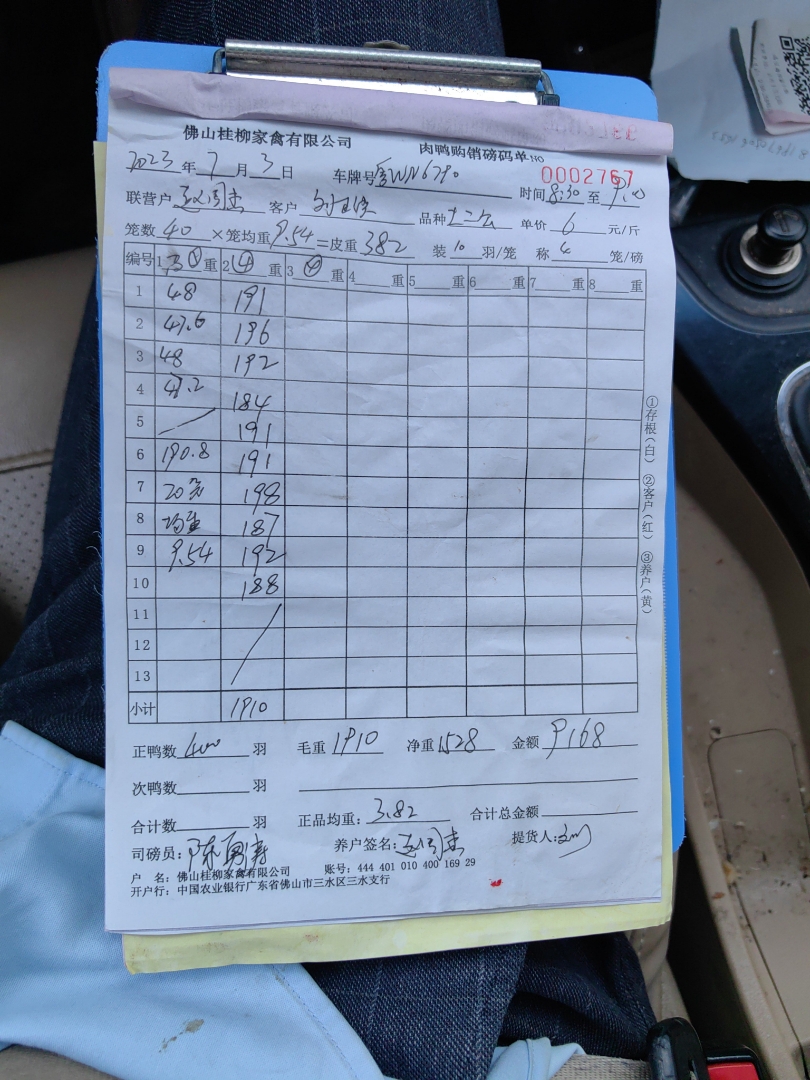 佛山桂柳家禽有限公司 肉鸭购销磅码单 NO 0002767
2023年7月3日 车牌号粤WN6790 时间8:30至9:00
联营户 客户 品种 单价6元/斤
笼数40×笼均重9.54=皮重382 装10羽/笼 称4笼/磅
编号 1 重 2④重 3④重 4重 5重 6重 7重 8重
1 48 191
2 47.6 196
3 48 192
4 47.2 184
5 191
6 190.8 191
7 20笼 198
8 均重 187
9 9.54 192
10 188
11
12
13
小计 1910
正鸭数400羽 毛重1910 净重1528 金额9168
次鸭数羽
合计数羽 正品均重：3.82 合计总金额
司磅员： 养户签名： 提货人：
户 名：佛山桂柳家禽有限公司 账号：444 401 010 400 169 29
开户行：中国农业银行广东省佛山市三水区三水支行
①存根(白) ②客户(红) ③养户(黄)